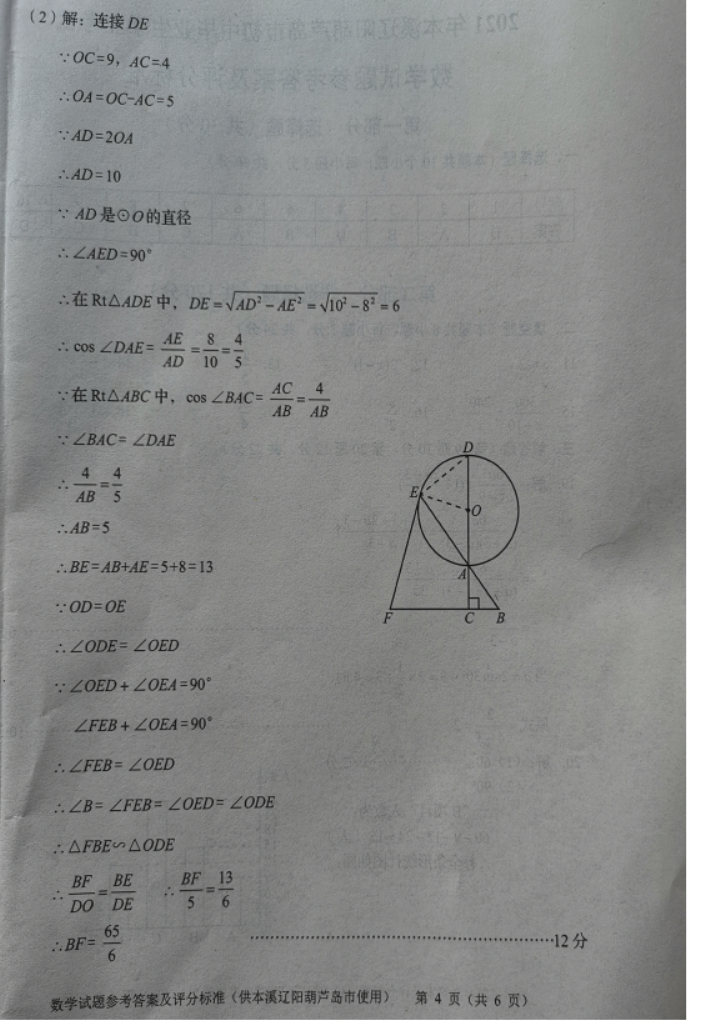 (2)解：连接DE
∵OC=9，AC=4
∴OA=OC-AC=5
∵AD=2OA
∴AD=10
∵ AD是⊙O的直径
∴∠AED=90°
∴在Rt△ADE中，DE=√(AD²-AE²)=√(10²-8²)=6
∴cos∠DAE=AE/AD=8/10=4/5
∵在Rt△ABC中，cos∠BAC=AC/AB=4/AB
∵∠BAC=∠DAE
∴4/AB=4/5
∴AB=5
∴BE=AB+AE=5+8=13
∵OD=OE
∴∠ODE=∠OED
∵∠OED+∠OEA=90°
∠FEB+∠OEA=90°
∴∠FEB=∠OED
∴∠B=∠FEB=∠OED=∠ODE
∴△FBE∽△ODE
∴BF/DO=BE/DE ∴BF/5=13/6
∴BF=65/6 ……………………………………………12分
D
E
O
A
F C B
数学试题参考答案及评分标准（供本溪辽阳葫芦岛市使用） 第 4 页（共 6 页）